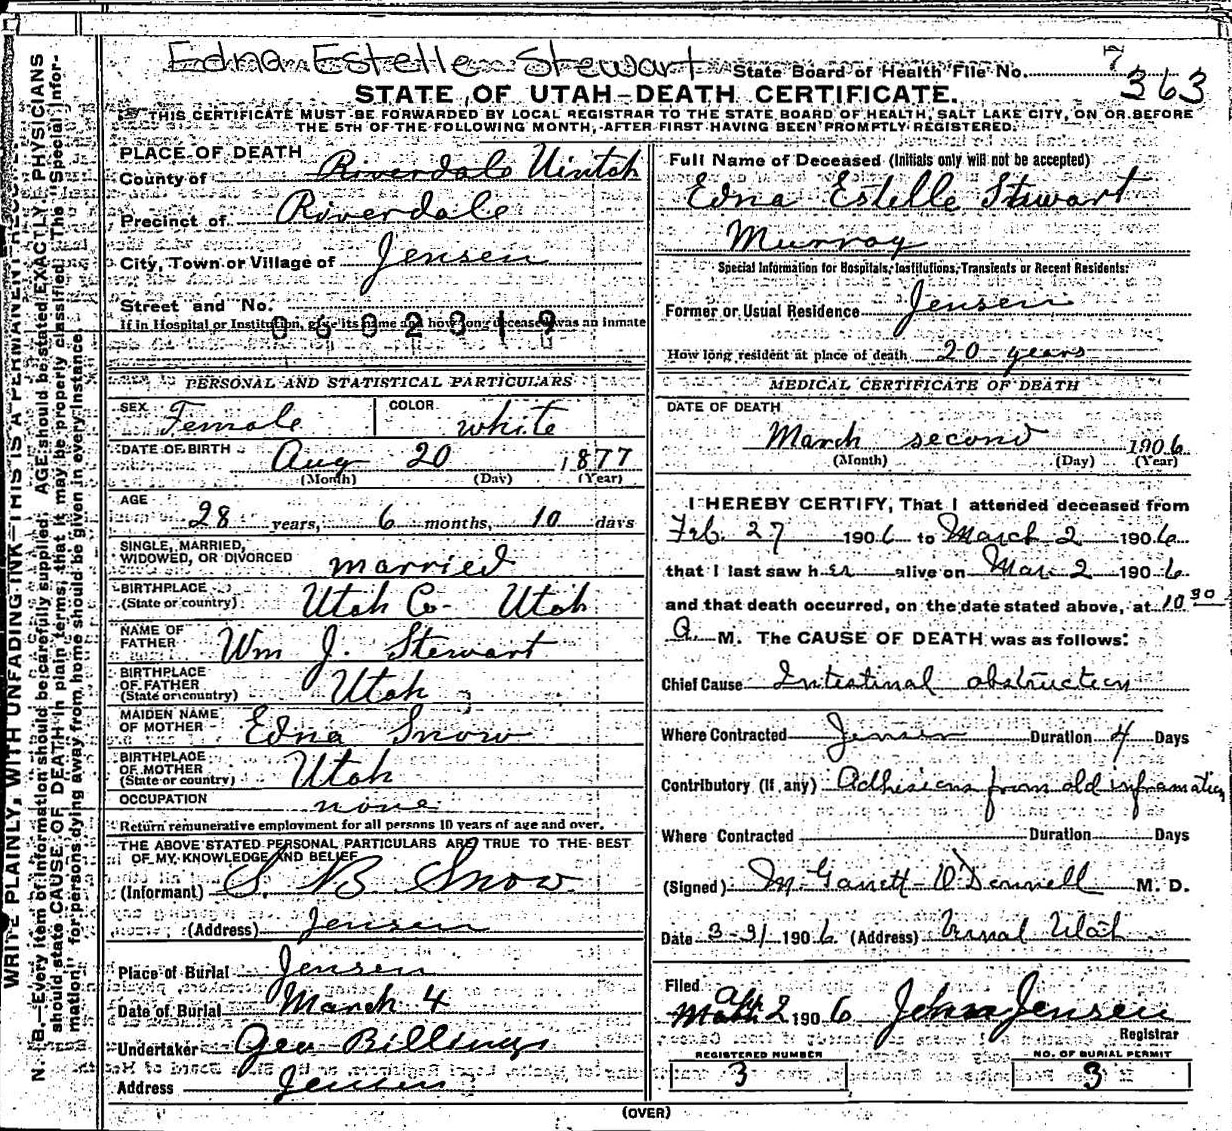 Edna Estelle Stewart
State Board of Health File No. 7 363
STATE OF UTAH—DEATH CERTIFICATE.
THIS CERTIFICATE MUST BE FORWARDED BY LOCAL REGISTRAR TO THE STATE BOARD OF HEALTH, SALT LAKE CITY, ON OR BEFORE
THE 5TH OF THE FOLLOWING MONTH, AFTER FIRST HAVING BEEN PROMPTLY REGISTERED.
WRITE PLAINLY, WITH UNFADING INK—THIS IS A PERMANENT
N. B.—Every item of information should be carefully supplied. AGE should be stated EXACTLY. PHYSICIANS
should state CAUSE OF DEATH in plain terms, that it may be properly classified. The "Special Infor-
mation" for persons dying away from home should be given in every instance.
PLACE OF DEATH
County of Riverdale Uintah
Precinct of Riverdale
City, Town or Village of Jensen
Street and No.
If in Hospital or Institution, give its name and how long deceased was an inmate
0602319
PERSONAL AND STATISTICAL PARTICULARS
SEX Female COLOR white
DATE OF BIRTH Aug 20 1877
(Month) (Day) (Year)
AGE 28 years, 6 months, 10 days
SINGLE, MARRIED,
WIDOWED, OR DIVORCED married
BIRTHPLACE
(State or country) Utah Co. Utah
NAME OF
FATHER Wm J. Stewart
BIRTHPLACE
OF FATHER
(State or country) Utah
MAIDEN NAME
OF MOTHER Edna Snow
BIRTHPLACE
OF MOTHER
(State or country) Utah
OCCUPATION none
Return remunerative employment for all persons 10 years of age and over.
THE ABOVE STATED PERSONAL PARTICULARS ARE TRUE TO THE BEST
OF MY KNOWLEDGE AND BELIEF
(Informant) S. B. Snow
(Address) Jensen
Place of Burial Jensen
Date of Burial March 4
Undertaker Geo Billings
Address Jensen
Full Name of Deceased (Initials only will not be accepted)
Edna Estelle Stewart
Murray
Special Information for Hospitals, Institutions, Transients or Recent Residents:
Former or Usual Residence Jensen
How long resident at place of death 20 years
MEDICAL CERTIFICATE OF DEATH
DATE OF DEATH
March second 1906
(Month) (Day) (Year)
I HEREBY CERTIFY, That I attended deceased from
Feb. 27 1906 to March 2 1906
that I last saw her alive on Mar 2 1906
and that death occurred, on the date stated above, at 10 30
A. M. The CAUSE OF DEATH was as follows:
Chief Cause Intestinal obstruction
Where Contracted Jensen Duration 4 Days
Contributory (if any) Adhesions from old
Where Contracted Duration Days
(Signed) M Garrett O'Donnell M. D.
Date 3-31 1906 (Address) Vernal Utah
Filed
Apr 2 1906 John Jensen
Registrar
REGISTERED NUMBER
3
NO. OF BURIAL PERMIT
3
(OVER)